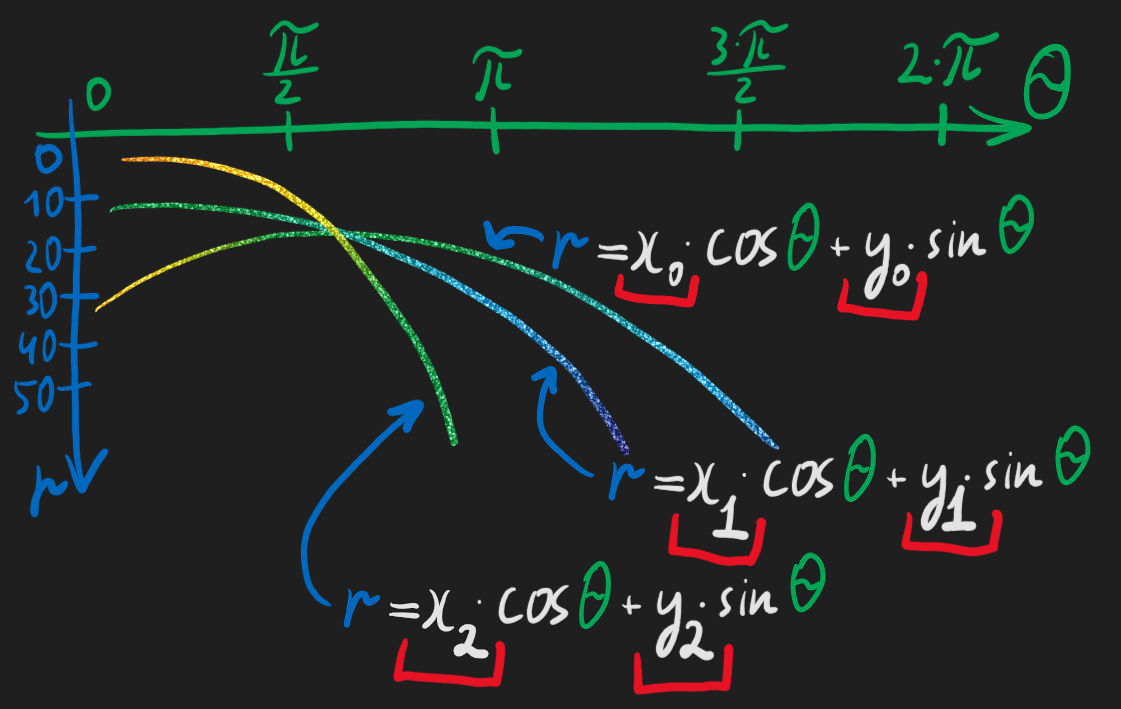 0 π/2 π 3·π/2 2·π θ
0
10
20
30
40
50
r
r = x₀·cos θ + y₀·sin θ
r = x₁·cos θ + y₁·sin θ
r = x₂·cos θ + y₂·sin θ